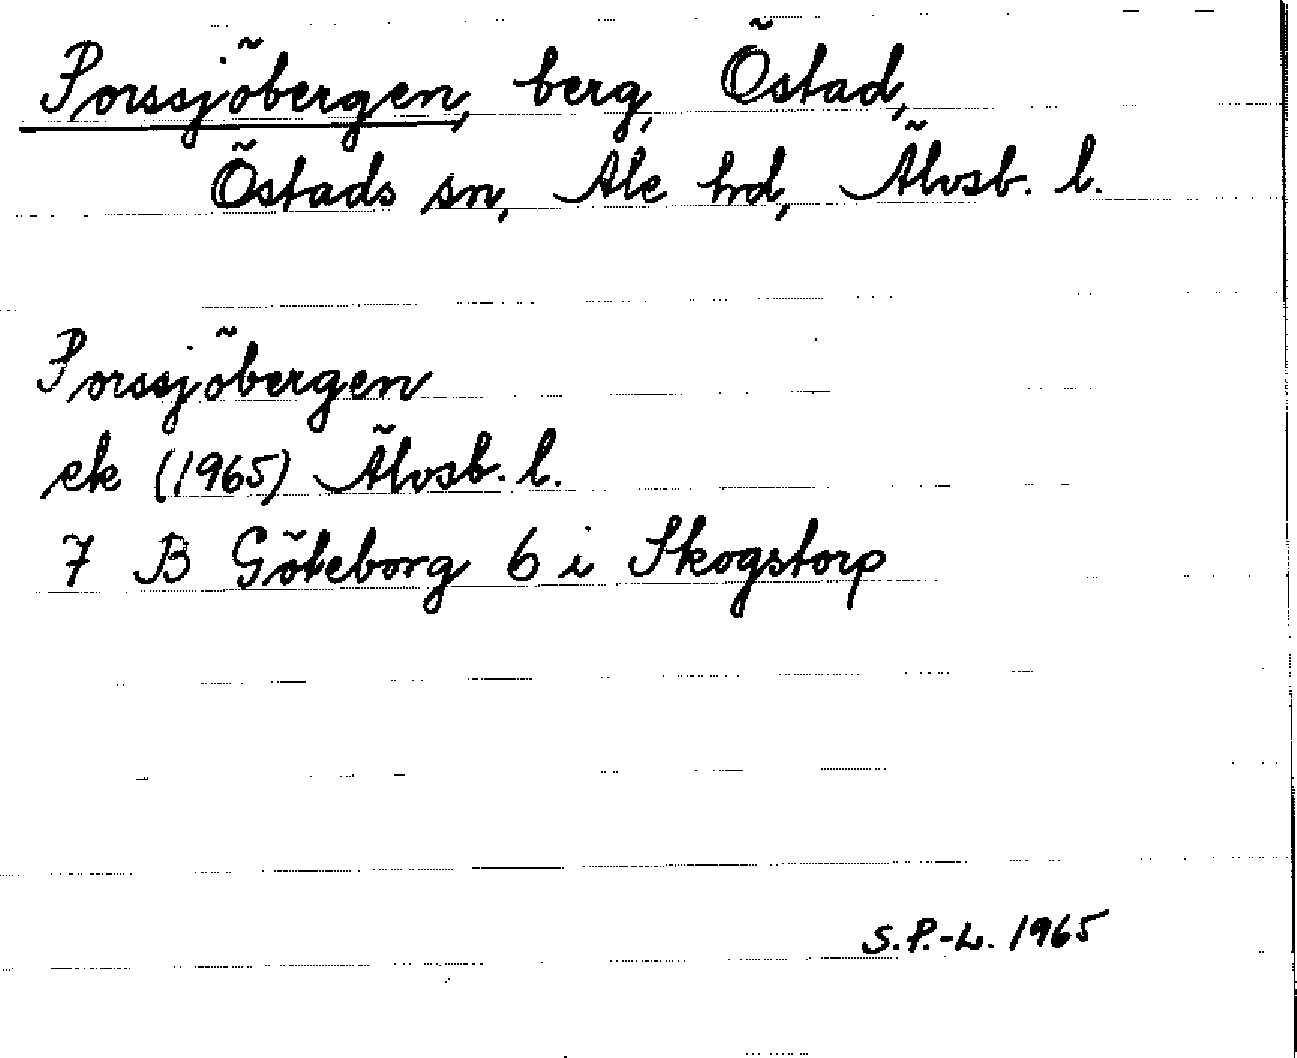 Porssjöbergen, berg, Östad,
Östads sn, Ale hd, Älvsb. l.
Porssjöbergen
ek (1965) Älvsb. l.
7 B Göteborg 6 i Skogstorp
S.P.-L. 1965